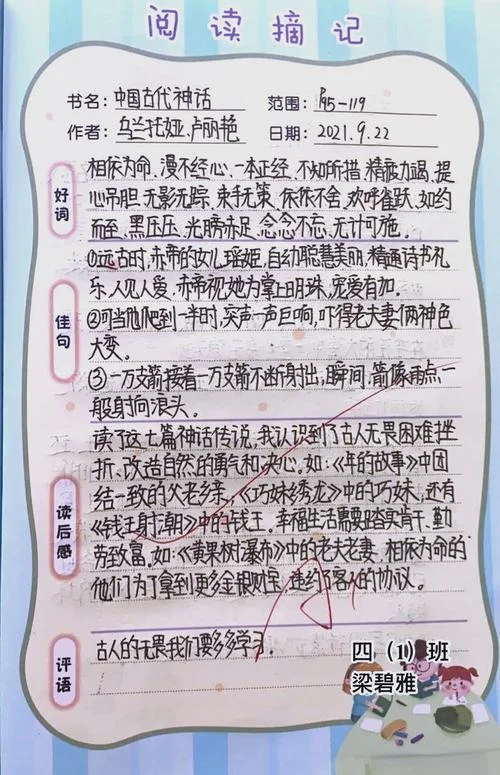 阅读摘记
书名：中国古代神话 范围：P95-119
作者：乌兰托娅、卢丽艳 日期：2021.9.22
好词
相依为命、漫不经心、一本正经、不知所措、精疲力竭、提
心吊胆、无影无踪、束手无策、依依不舍、欢呼雀跃、如约
而至、黑压压、光膀赤足、念念不忘、无计可施。
佳句
①远古时，赤帝的女儿瑶姬，自幼聪慧美丽，精通诗书礼
乐，人见人爱，赤帝视她为掌上明珠，宠爱有加。
②可当他爬到一半时，突声一声巨响，吓得老夫妻俩神色
大变。
③一万支箭接着一万支箭不断射出，瞬间，箭像雨点一
般射向浪头。
读后感
读了这七篇神话传说，我认识到了古人无畏困难挫
折、改造自然的勇气和决心。如：《年的故事》中团
结一致的父老乡亲，《巧妹绣龙》中的巧妹，还有
《钱王射潮》中的钱王。幸福生活需要踏实肯干、勤
劳致富，如：《黄果树瀑布》中的老夫老妻，相依为命的
他们为了拿到更多金银财宝，违约了客人的协议。
评语
古人的无畏我们要多多学习。
四（1）班
梁碧雅